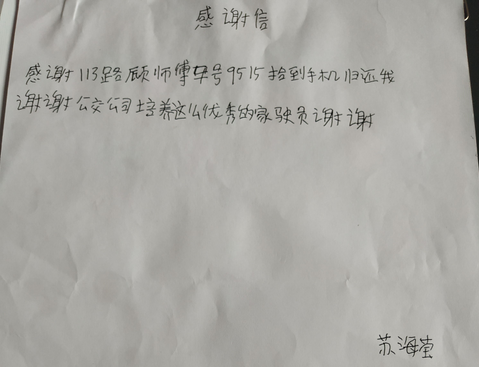 感谢信
感谢113路顾师傅车号9515拾到手机归还我
谢谢公交公司培养这么优秀的驾驶员谢谢
苏海